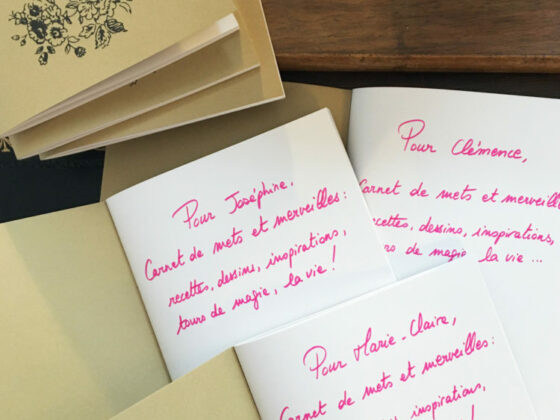 Pour Joséphine,
Carnet de mets et merveilles :
recettes, dessins, inspirations,
tours de magie, la vie !
Pour Clémence,
Carnet de mets et merveill
recettes, dessins, inspirations,
tours de magie la vie ...
Pour Marie-Claire,
Carnet de mets et merveilles :
inspirations,